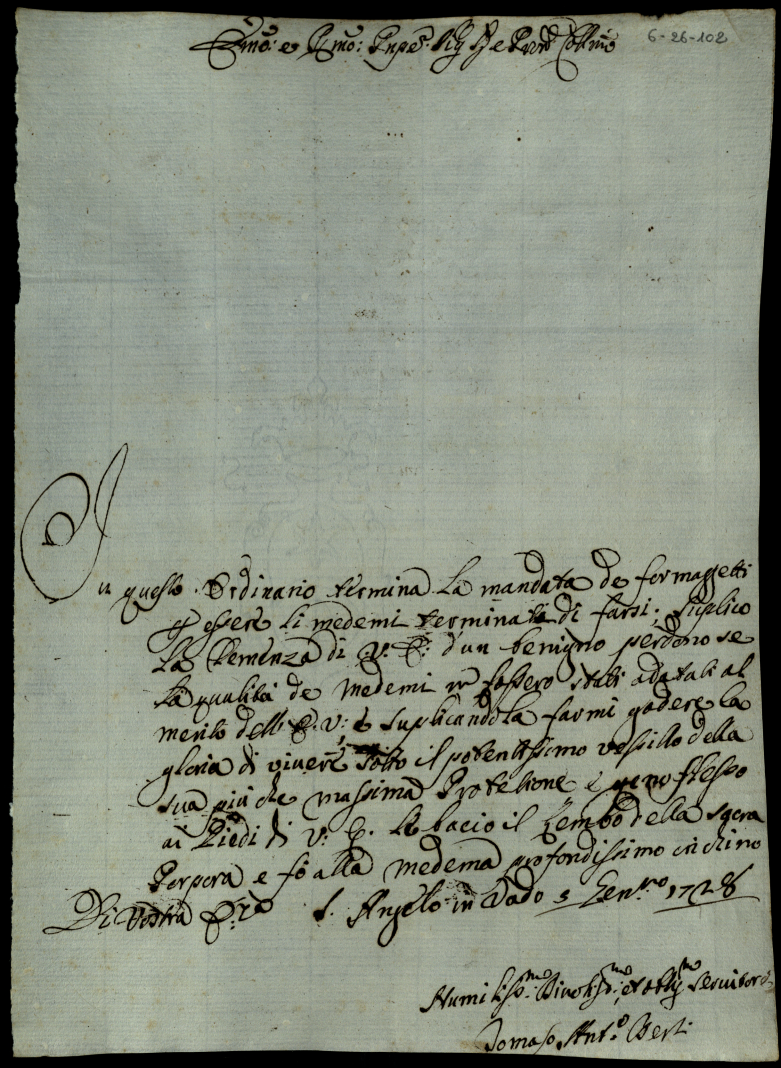 Emo: e Rmo: Prnpe: Sig: e Pron Collmo
6-26-102
In questo Ordinario termina la mandata de formaggetti
p essere li medemi terminati di farsi; suplico
la Clemenza di V: E: d'un benigno perdono se
la qualità de medemi n fossero stati adatati al
merito dell' E: V:, e suplicandola farmi godere la
gloria di vivere sotto il potentissimo vessillo della
sua più che massima Protetione e genoflesso
ai Piedi di V: E: le bacio il Lembo della sacra
Porpora e fò alla medema profondissimo inchino
Di Vostra Eza S. Angelo in Vado 3 Genro 1728
Humilissmo Divotissmo, et obligmo Servitore
Tomaso Anto Berti